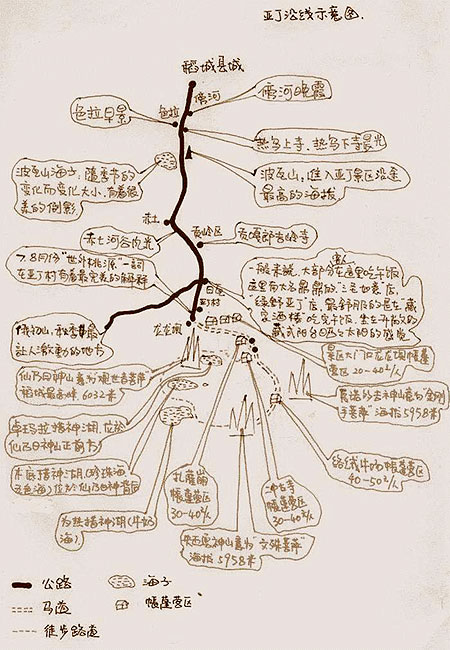 亚丁沿线示意图.
稻城县城
傍河
傍河晚霞
色拉
色拉早景
热乌上寺、热乌下寺晨光
波瓦山海子,随季节的
变化而变化大小,有着很
美的倒影
波瓦山,进入亚丁景区沿途
最高的海拔
赤土
赤土河谷风光
贡岭区
贡嘎郎吉岭寺
7、8月份“世外桃源”一词
在亚丁村有着最完美的解释
日瓦
一般来说,大部分在这里吃午饭
这里有大名鼎鼎的
绿野亚丁店,最舒服的是在藏
家酒楼吃完午饭,坐在开放的
藏式阳台
亚丁村
俄初山,秋季最
让人激动的地方
龙龙坝
景区大门口在龙龙坝帐篷
营区20-40元/人
仙乃日神山意为观世音菩萨
稻城最高峰6032米
夏诺多吉神山意为“金刚
手菩萨”海拔5958米
卓玛拉措神湖,位於
仙乃日神山正前方
络绒牛场帐篷营区
40-50元/人
五色海)位於仙乃日神山背后
扎灌崩
帐篷营区
30-40元/人
冲古寺
帐篷营区
30-40元/人
为热措神湖(牛奶
海)
央迈勇神山意为“文殊菩萨”
海拔5958米
公路
海子
马道
帐篷营区
徒步路道